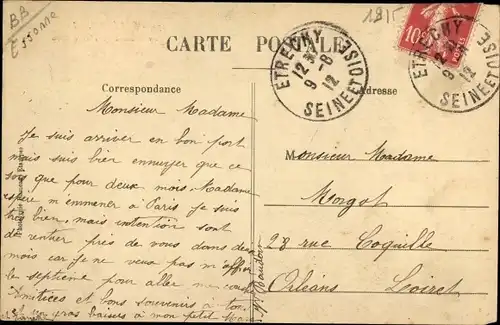 BB
Essonne
1915
CARTE POSTALE
10
ETRECHY
12 9-8 12
SEINE ET OISE
ETRECHY
12 9-8 12
SEINE ET OISE
Correspondance
Adresse
Monsieur Madame
Je suis arriver en bon port
mais suis bien ennuyer que ce
sois que pour deux mois. Madame
espere m emmener à Paris je suis
très bien, mais intention sont
de rentrer près de vous dans des
mois car je ne veux pas m'
le septième pour aller
Amitiées et bons souvenirs à tous
gros baisers à mon petit
Monsieur Madame
Morgot
28 rue Coquille
Orléans Loiret